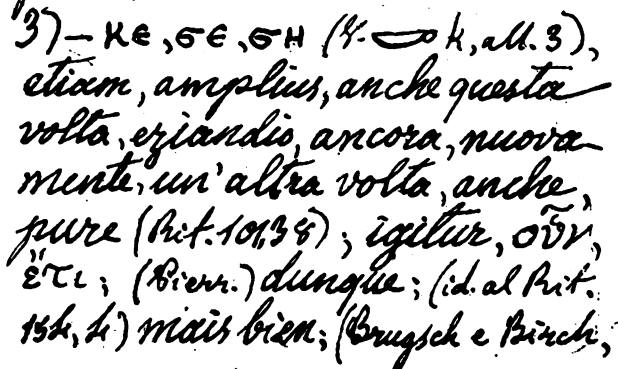 3) – ⲕⲉ, ϭⲉ, ϭⲏ (V. k, all. 3),
etiam, amplius, anche questa
volta, eziandio, ancora, nuova-
mente, un'altra volta, anche,
pure (Rit. 101,38); igitur, οὖν,
ἔτι; (Pierr.) dunque; (id. al Rit.
154, 4) mais bien; (Brugsch e Birch,